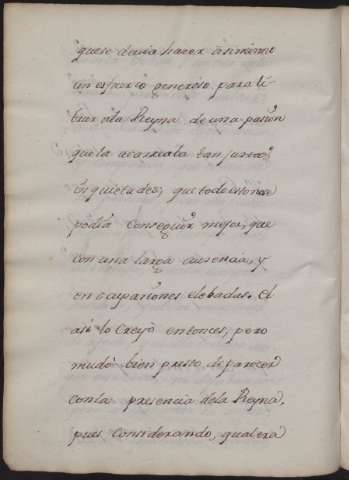 que se devia hacer asimismo
un esfuerzo generoso para li-
brar ála Reyna de una pasion
que la acarreaba tan
inquietudes; que todo esto no se
podia conseguir mejor, que
con una larga ausencia, y
en ocupaciones elebadas. El
asi lo creyó entonces, pero
mudó bien presto de parecer
con la presencia de la Reyna,
pues considerando, qual era